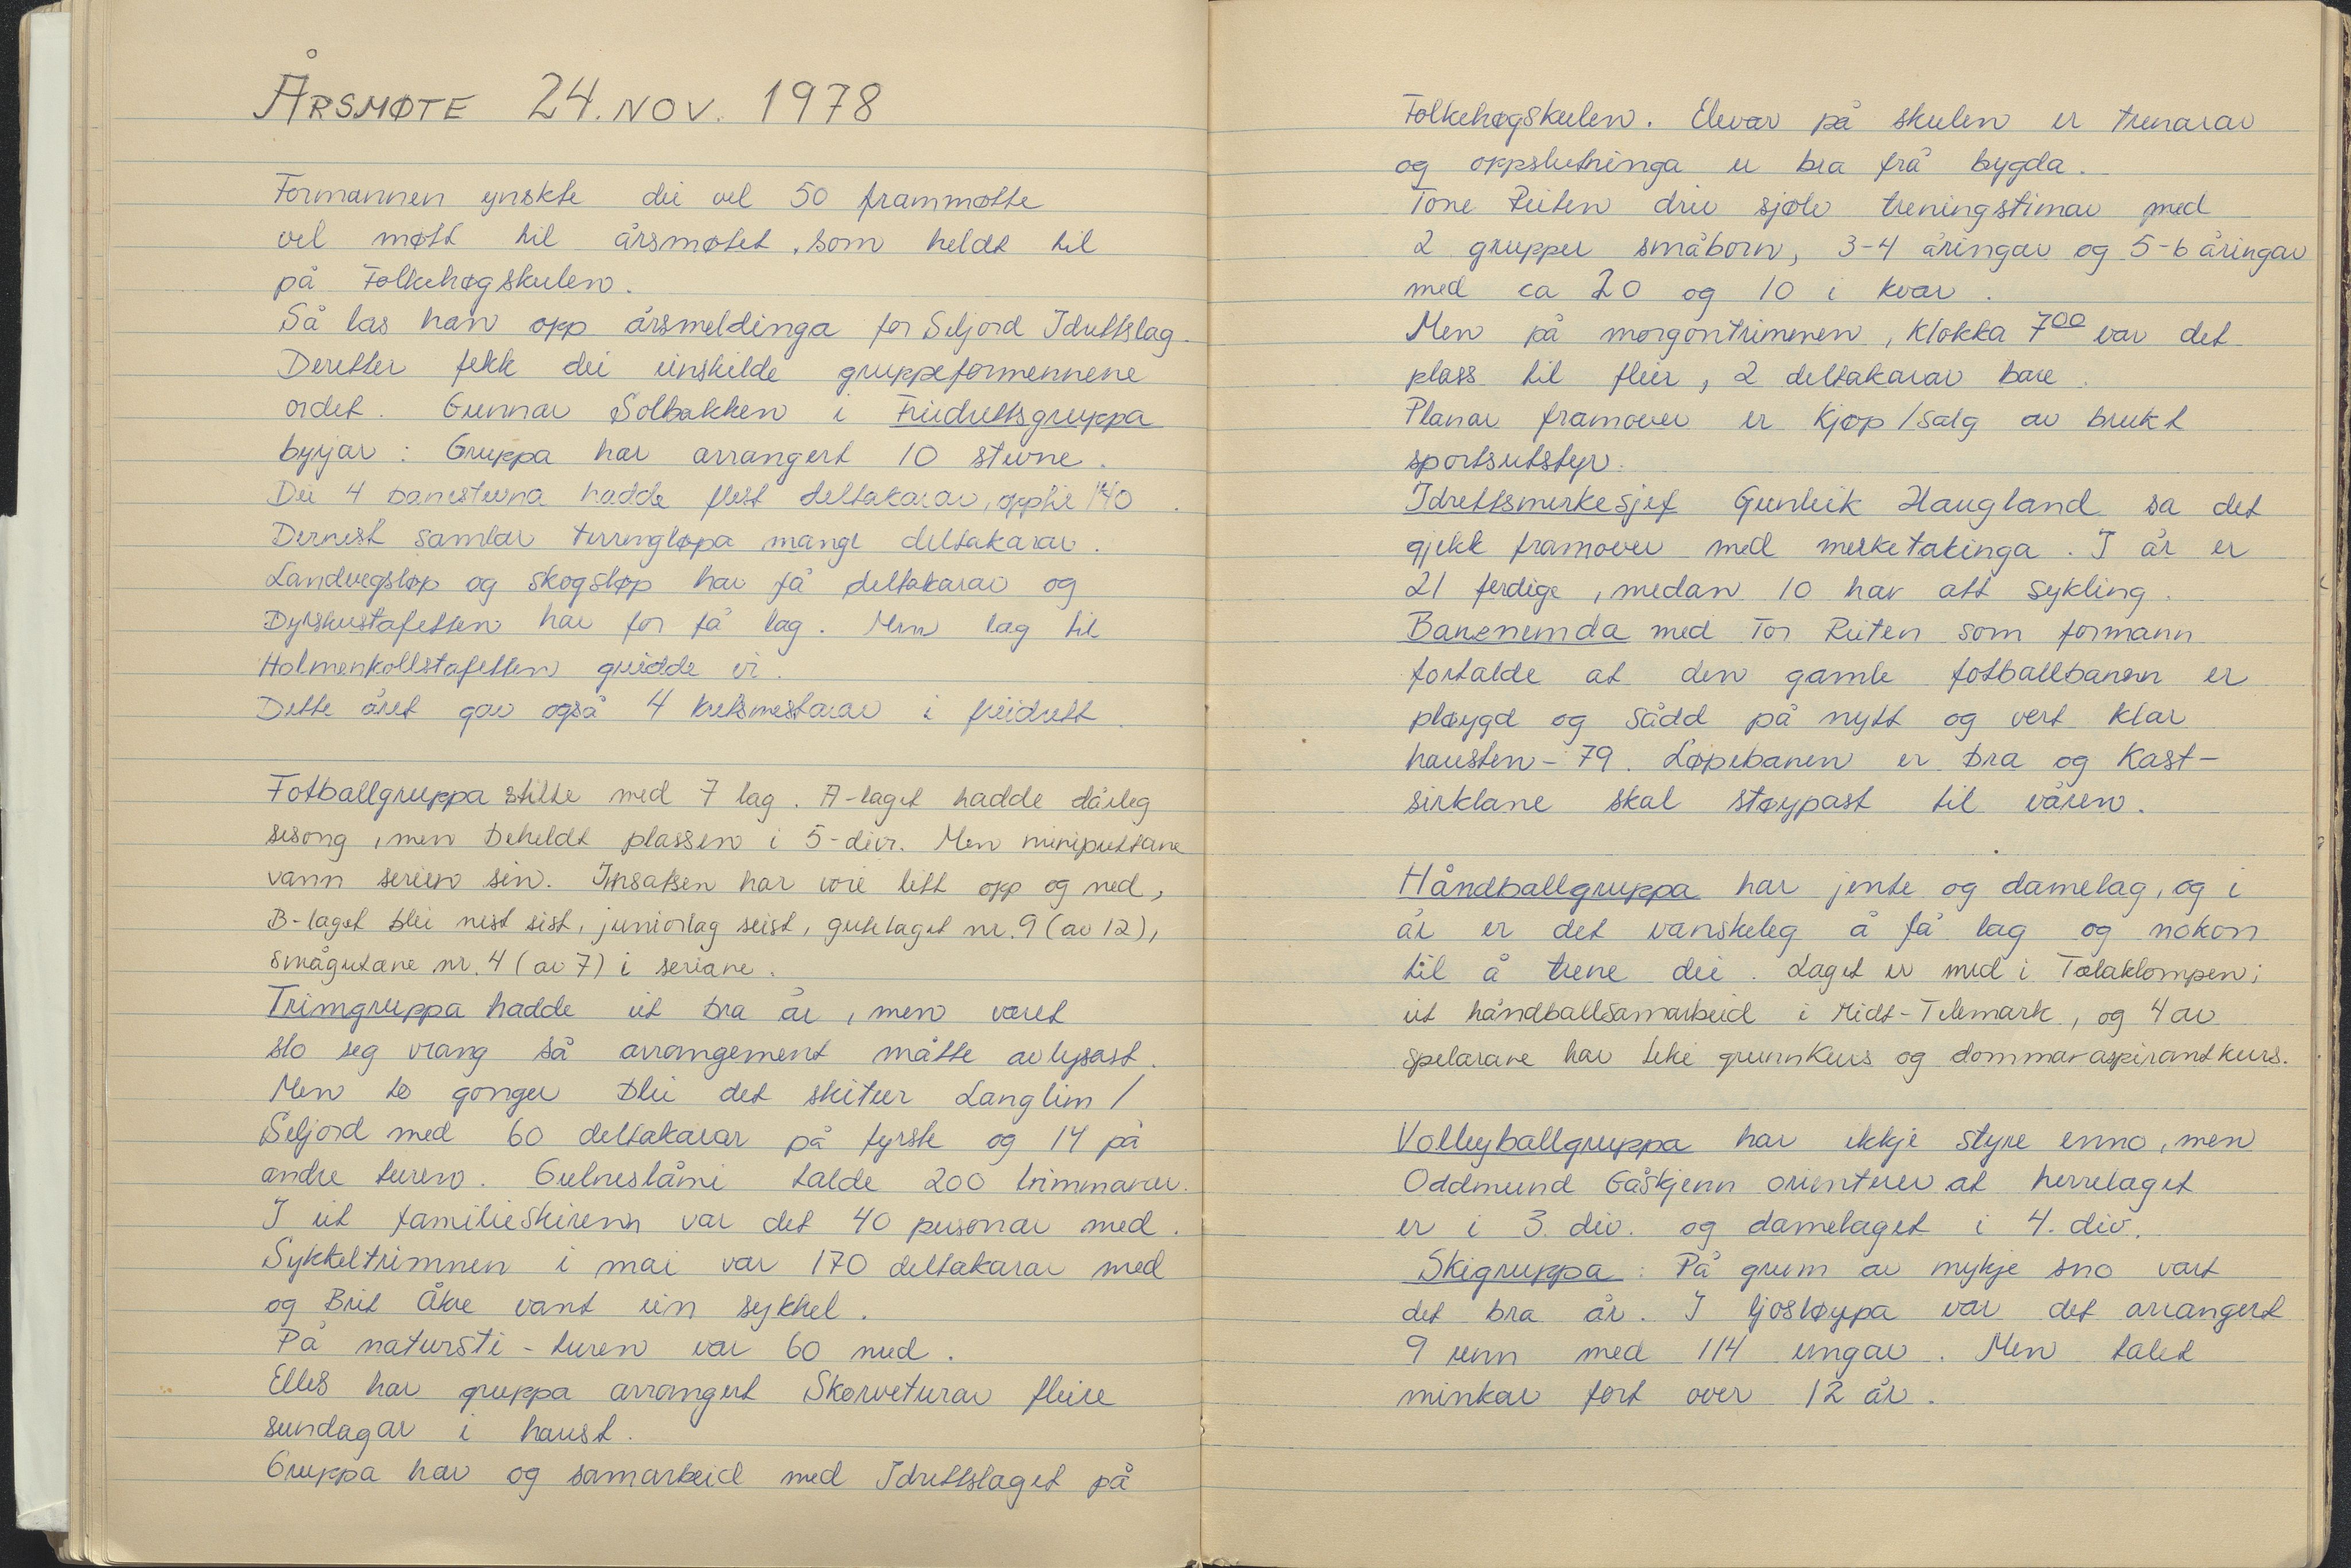 ÅRSMØTE 24. NOV. 1978
Formannen ynskte dei vel 50 frammøtte
vel møtt til årsmøtet, som heldt til
på Folkehøgskulen.
Så las han opp årsmeldinga for Seljord Idrettslag.
Deretter fekk dei einskilde gruppeformennene
ordet. Gunnar Solbakken i Friidrettsgruppa
byrjar: Gruppa har arrangert 10 stevne.
Dei 4 banestevna hadde flest deltakarar, opptil 140.
Dernest samlar terrengløpa mange deltakarar.
Landvegsløp og skogsløp har få deltakarar og
Dyrskustafetten har for få lag. Men lag til
Holmenkollstafetten greidde vi.
Dette året gav også 4 kretsmestarar i friidrett.
Fotballgruppa stilte med 7 lag. A-laget hadde dårleg
sesong, men beheldt plassen i 5-div. Men miniputtane
vann serien sin. Insatsen har vore litt opp og ned,
B-laget blei nest sist, juniorlag seist, gutelaget nr. 9 (av 12),
smågutane nr. 4 (av 7) i seriane.
Trimgruppa hadde eit bra år, men veret
slo seg vrang så arrangement måtte avlysast.
Men to gonger blei det skitur Langlim /
Seljord med 60 deltakarar på fyrste og 14 på
andre turen. Gulneslåmi talde 200 trimmarar.
I eit familieskirenn var det 40 personar med.
Sykkeltrimmen i mai var 170 deltakarar med
og Brit Åkre vant ein sykkel.
På natursti-turen var 60 med.
Elles har gruppa arrangert Skorveturar fleire
sundagar i haust.
Gruppa har og samarbeid med Idrettslaget på
Folkehøgskulen. Elevar på skulen er trenarar
og oppslutninga er bra frå bygda.
Tone Reiten driv sjølv treningstimar med
2 grupper småborn, 3-4 åringar og 5-6 åringar
med ca 20 og 10 i kvar.
Men på morgontrimmen, klokka 7⁰⁰ var det
plass til fleir, 2 deltakarar bare.
Planar framover er kjøp/salg av brukt
sportsutstyr.
Idrettsmerkesjef Gunleik Haugland sa det
gjekk framover med merketakinga. I år er
21 ferdige, medan 10 har att sykling.
Banenemda med Tor Reiten som formann
fortalde at den gamle fotballbanen er
pløygd og sådd på nytt og vert klar
hausten-79. Løpebanen er bra og kast-
sirklane skal støypast til våren.
Håndballgruppa har jente og damelag, og i
år er det vanskeleg å få lag og nokon
til å trene dei. Laget er med i Telaklompen;
eit håndballsamarbeid i Midt-Telemark, og 4 av
spelarane har teke grunnkurs og dommaraspirantkurs.
Volleyballgruppa har ikkje styre enno, men
Oddmund Gåskjenn orienterer at herrelaget
er i 3. div. og damelaget i 4. div.
Skigruppa: På grunn av mykje sno vart
det bra år. I ljosløypa var det arrangert
9 renn med 114 ungar. Men talet
minkar fort over 12 år.